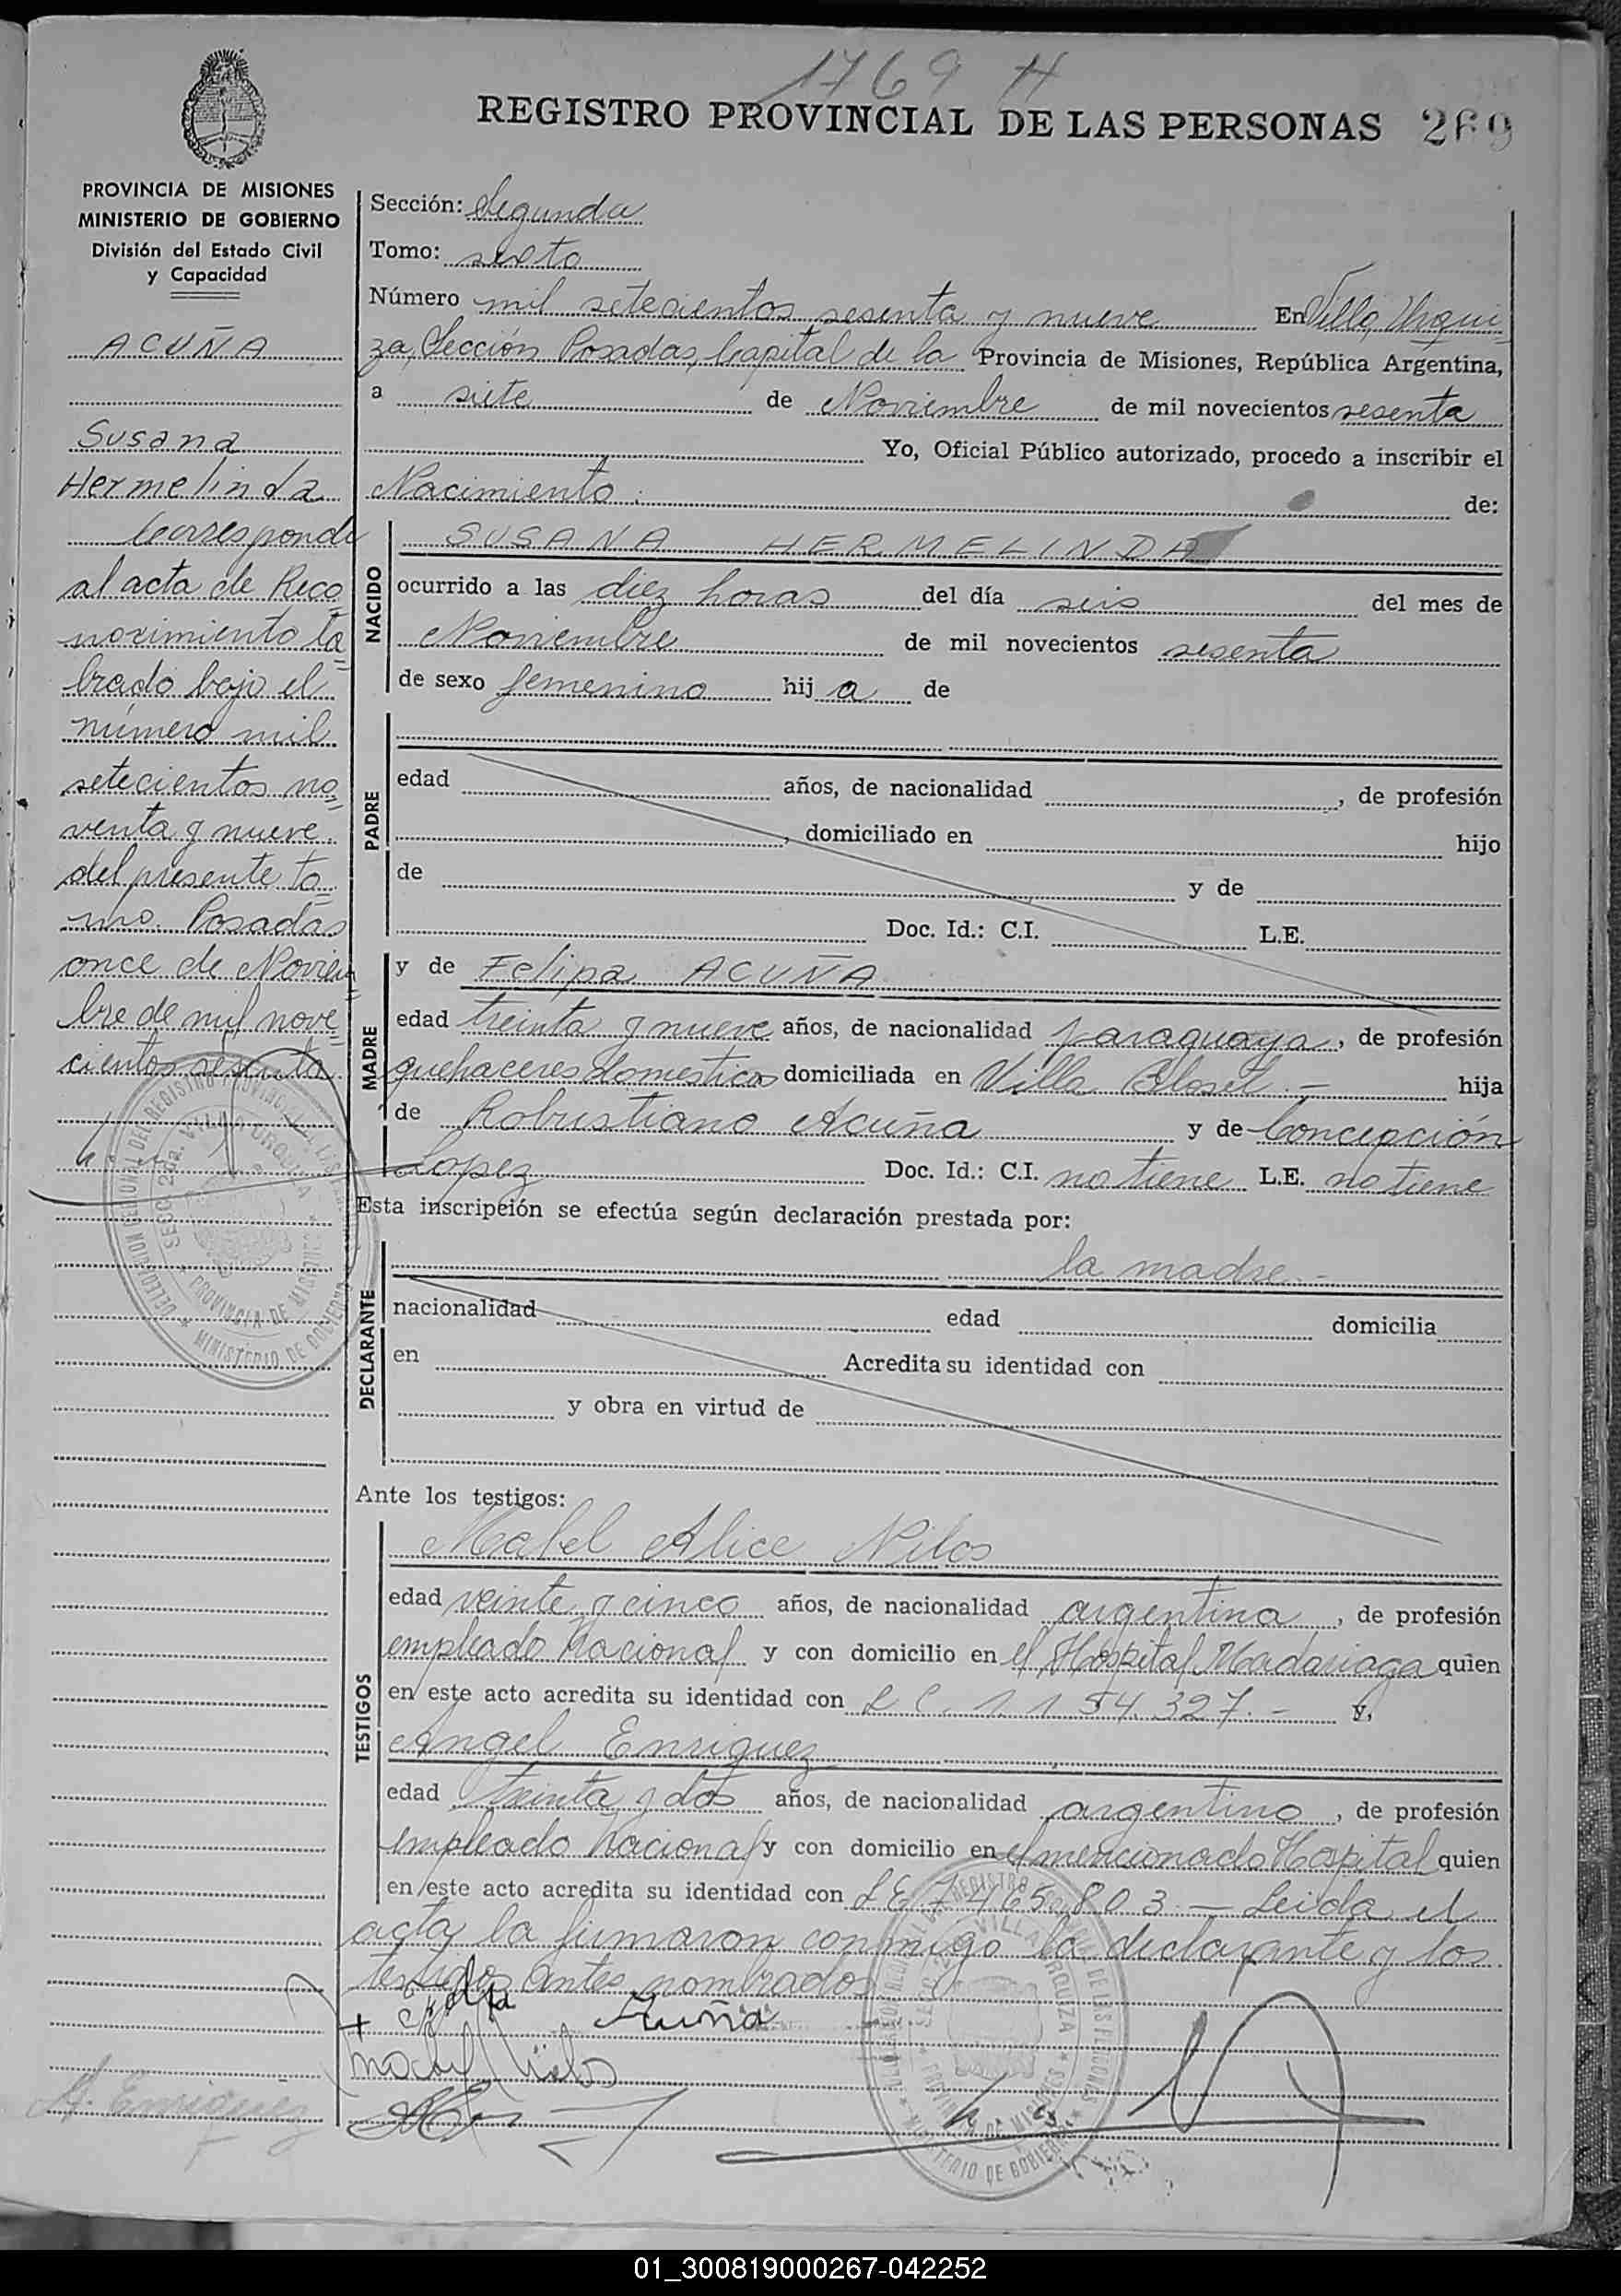 1769 H
REGISTRO PROVINCIAL DE LAS PERSONAS 269
PROVINCIA DE MISIONES
MINISTERIO DE GOBIERNO
División del Estado Civil
y Capacidad
ACUÑA
Susana
Hermelinda
Corresponde
al acta de Reco=
nocimiento la=
brado bajo el
número mil
setecientos no=
venta y nueve.
del presente to=
mo. Posadas
once de Noviem=
bre de mil nove=
cientos sesenta.
Sección: Segunda
Tomo: sexto
Número mil setecientos sesenta y nueve En Villa Urqui=
za, Sección Posadas, Capital de la Provincia de Misiones, República Argentina,
a siete de Noviembre de mil novecientos sesenta
Yo, Oficial Público autorizado, procedo a inscribir el
Nacimiento. de:
NACIDO
SUSANA HERMELINDA
ocurrido a las diez horas del día seis del mes de
Noviembre de mil novecientos sesenta
de sexo femenino hij a de
PADRE
edad años, de nacionalidad , de profesión
, domiciliado en hijo
de y de
Doc. Id.: C.I. L.E.
MADRE
y de Felipa ACUÑA
edad treinta y nueve años, de nacionalidad paraguaya, de profesión
quehaceres domesticos domiciliada en Villa Blosét.- hija
de Robustiano Acuña y de Concepción
Lopez Doc. Id.: C.I. no tiene L.E. no tiene
Esta inscripción se efectúa según declaración prestada por:
DECLARANTE
la madre.-
nacionalidad edad domicilia
en Acredita su identidad con
y obra en virtud de
Ante los testigos:
TESTIGOS
Mabel Alice Nilos
edad veinte y cinco años, de nacionalidad argentina, de profesión
empleado Nacional y con domicilio en el Hospital Madariaga quien
en este acto acredita su identidad con L C. 1.154.327.- y,
Angel Enriquez
edad treinta y dos años, de nacionalidad argentino, de profesión
empleado Nacional y con domicilio en el mencionado Hospital quien
en este acto acredita su identidad con L E 7.465.803.- Leida el
acta, la firmaron conmigo la declarante y los
testigos antes nombrados
Acuña
Mabel Nilos
A. Enriquez
DELEGACION REGIONAL DEL REGISTRO PROVINCIAL DE LAS PERSONAS
SECC. 2da. VILLA URQUIZA
PROVINCIA DE MISIONES
MINISTERIO DE GOBIERNO
01_300819000267-042252